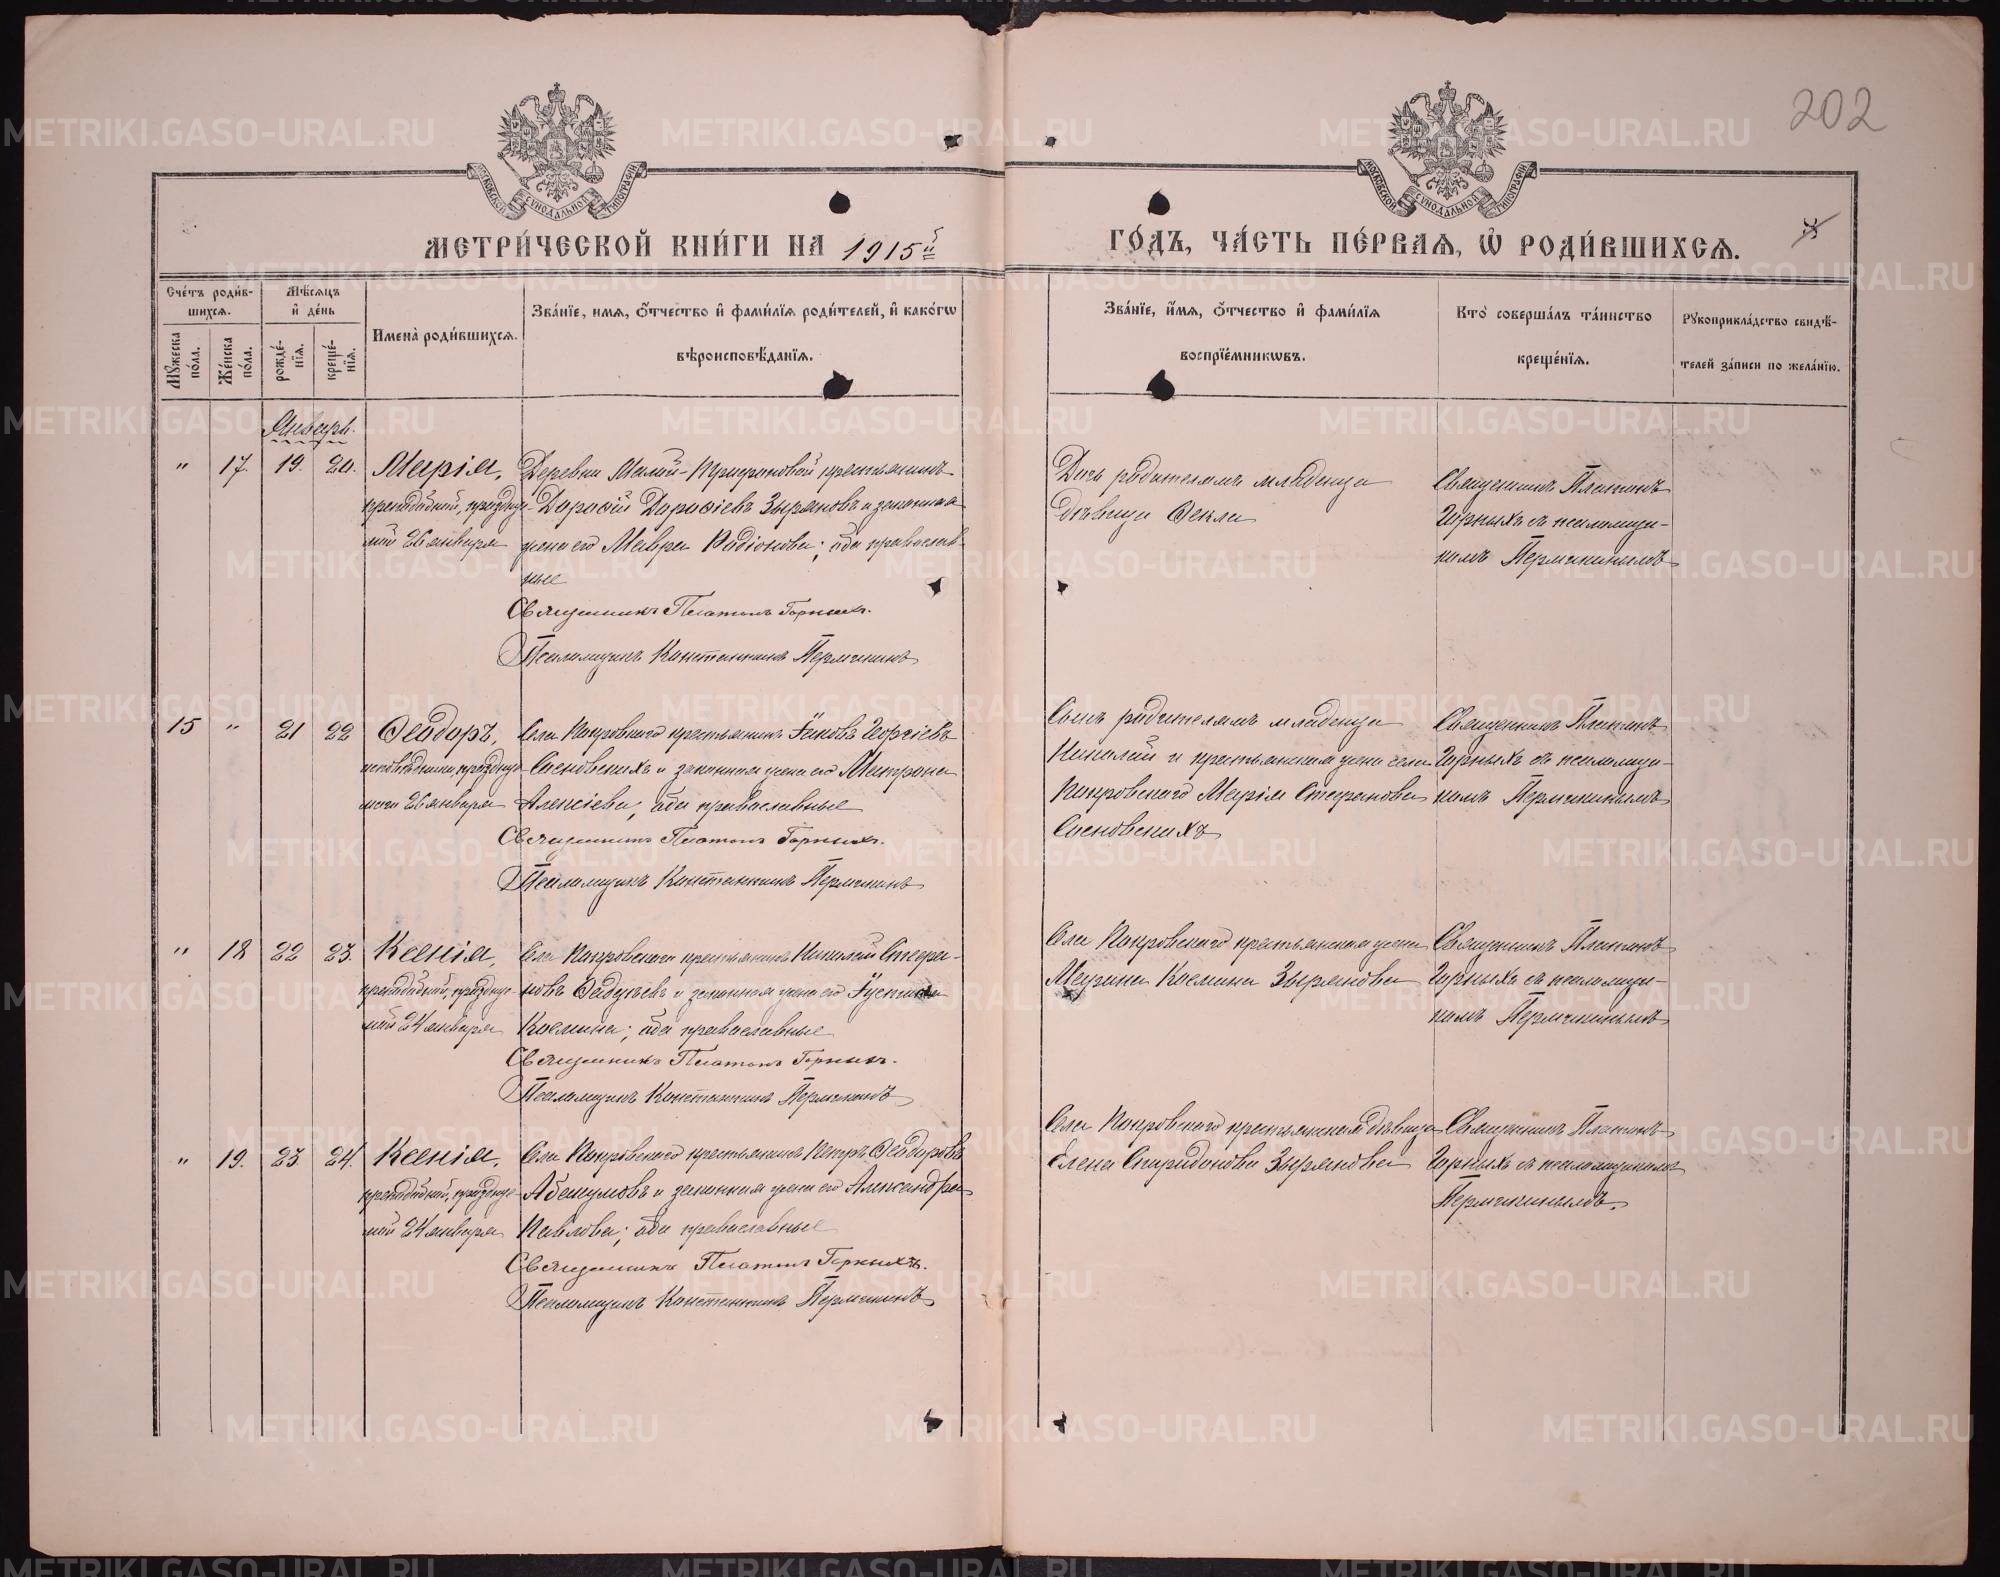 202
МОСКОВСКОЙ СУНОДАЛЬНОЙ ТИПОГРАФІИ
МОСКОВСКОЙ СУНОДАЛЬНОЙ ТИПОГРАФІИ
МЕТРИ́ЧЕСКОЙ КНИ́ГИ НА 1915й
ГО́ДЪ, ЧА́СТЬ ПЕ́РВАѦ, Ѡ҆ РОДИ́ВШИХСѦ.
Сче́тъ роди́в-
шихсѧ.
Мꙋ́жеска по́ла.
Же́нска по́ла.
Мѣ́сѧцъ
и҆ де́нь
рожде́-
нїѧ.
креще́-
нїѧ.
Имена̀ роди́вшихсѧ.
Зва́нїе, имѧ, ѻ҆́тчество и҆ фами́лїѧ роди́телей, и҆ како́гѡ
вѣроисповѣ́данїѧ.
Зва́нїе, и҆́мѧ, ѻ҆́тчество и҆ фами́лїѧ
воспрїе́мникѡвъ.
Кто̀ соверша́лъ та́инство
креще́нїѧ.
Рꙋкоприкла́дство свидѣ́-
телей за́писи по жела́нїю.
Январь.
" 17. 19. 20. Марія,
преподобной, праздну-
мой 26 января
Деревни Малой- крестьянинъ
Дорофей Дорофеевъ Зыряновъ и законная
жена его Мавра Родіонова; оба православ-
ные
Священникъ Платонъ Горныхъ.
Псаломщикъ Константинъ Пермикинъ
Дочь родителямъ младенца
дѣвица Фекла
Священникъ Платонъ
Горныхъ съ псаломщи-
комъ Пермикинымъ
15 " 21 22 Ѳеодоръ,
исповѣдника, праздну-
мого 26 января
Села Покровскаго крестьянинъ Іаковъ Георгіевъ
Сосновскихъ и законная жена его Матрона
Алексіева, оба православные
Священникъ Платонъ Горныхъ.
Псаломщикъ Константинъ Пермикинъ
Сынъ родителямъ младенца
Николай и крестьянская жена села
Покровскаго Марія Стефанова
Сосновскихъ
Священникъ Платонъ
Горныхъ съ псаломщи-
комъ Пермикинымъ
" 18 22 23. Ксенія,
преподобной, праздну-
мой 24 января
Села Покровскаго крестьянинъ Николай Стефа-
новъ и законная жена его Іустина
Космина; оба православные
Священникъ Платонъ Горныхъ.
Псаломщикъ Константинъ Пермикинъ
Села Покровскаго крестьянская жена
Марина Космина Зырянова
Священникъ Платонъ
Горныхъ съ псаломщи-
комъ Пермикинымъ
" 19. 23 24. Ксенія,
преподобной, праздну-
мой 24 января
Села Покровскаго крестьянинъ Петръ Ѳеодоровъ
Абакумовъ и законная жена его Александра
Павлова; оба православные
Священникъ Платонъ Горныхъ.
Псаломщикъ Константинъ Пермикинъ
Села Покровскаго крестьянская дѣвица
Елена Спиридонова Зырянова
Священникъ Платонъ
Горныхъ съ псаломщикомъ
Пермикинымъ.
METRIKI.GASO-URAL.RU